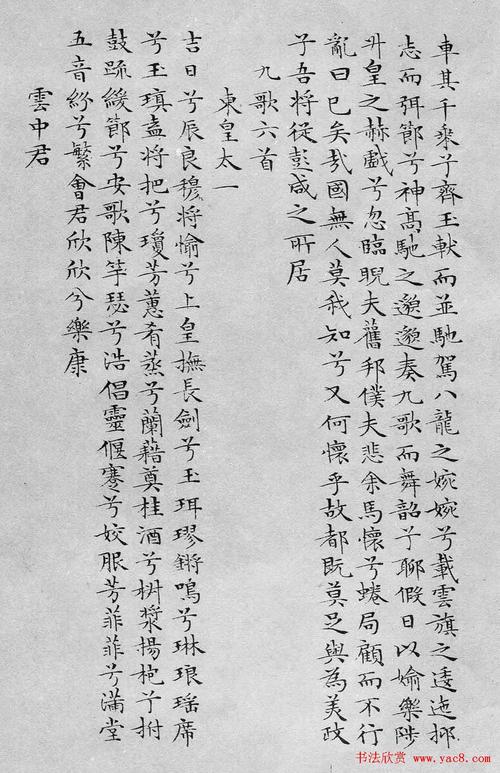 車其千乘兮齊玉軑而並馳駕八龍之婉婉兮載雲旗之逶迤抑
志而弭節兮神高馳之邈邈奏九歌而舞韶兮聊假日以媮樂陟
升皇之赫戲兮忽臨睨夫舊邦僕夫悲余馬懷兮蜷局顧而不行
亂曰已矣哉國無人莫我知兮又何懷乎故都既莫足與為美政
兮吾將從彭咸之所居
九歌六首
東皇太一
吉日兮辰良穆將愉兮上皇撫長劍兮玉珥璆鏘鳴兮琳琅瑤席
兮玉瑱盍將把兮瓊芳蕙肴蒸兮蘭藉奠桂酒兮椒漿揚枹兮拊
鼓疏緩節兮安歌陳竽瑟兮浩倡靈偃蹇兮姣服芳菲菲兮滿堂
五音紛兮繁會君欣欣兮樂康
雲中君
书法欣赏
www.yac8.com